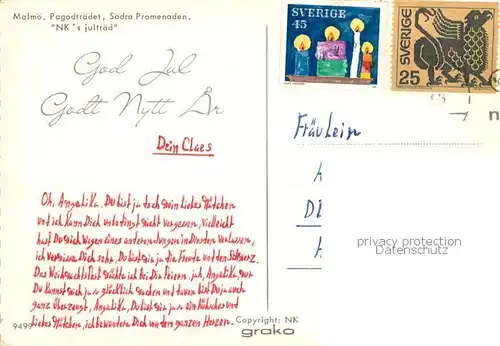 Malmö, Pagodträdet, Södra Promenaden,
"NK's julträd"
SVERIGE
45
SVERIGE
25
God Jul
Godt Nytt År
Dein Claes
Fräulein
Oh, Angelika, Du bist ja doch ein liebes Mädchen
und ich kann Dich unbedingt nicht vergessen, vielleicht
hast Du mich wegen eines anderen in Dresden verlassen,
ich vermisse Dich sehr, Du bist mir ja die Freude und den Schmerz.
Das Weihnachtsfest möchte ich bei Dir feiern, jah, Angelika nur
Du kannst mich ja so glücklich machen und davon bist Du ja auch
ganz überzeugt, Angelika, Du bist mir ja ein hübsches und
liebes Mädchen, ich bewundere Dich von dem ganzen Herzen.
privacy protection
Datenschutz
9499
Copyright: NK
grako